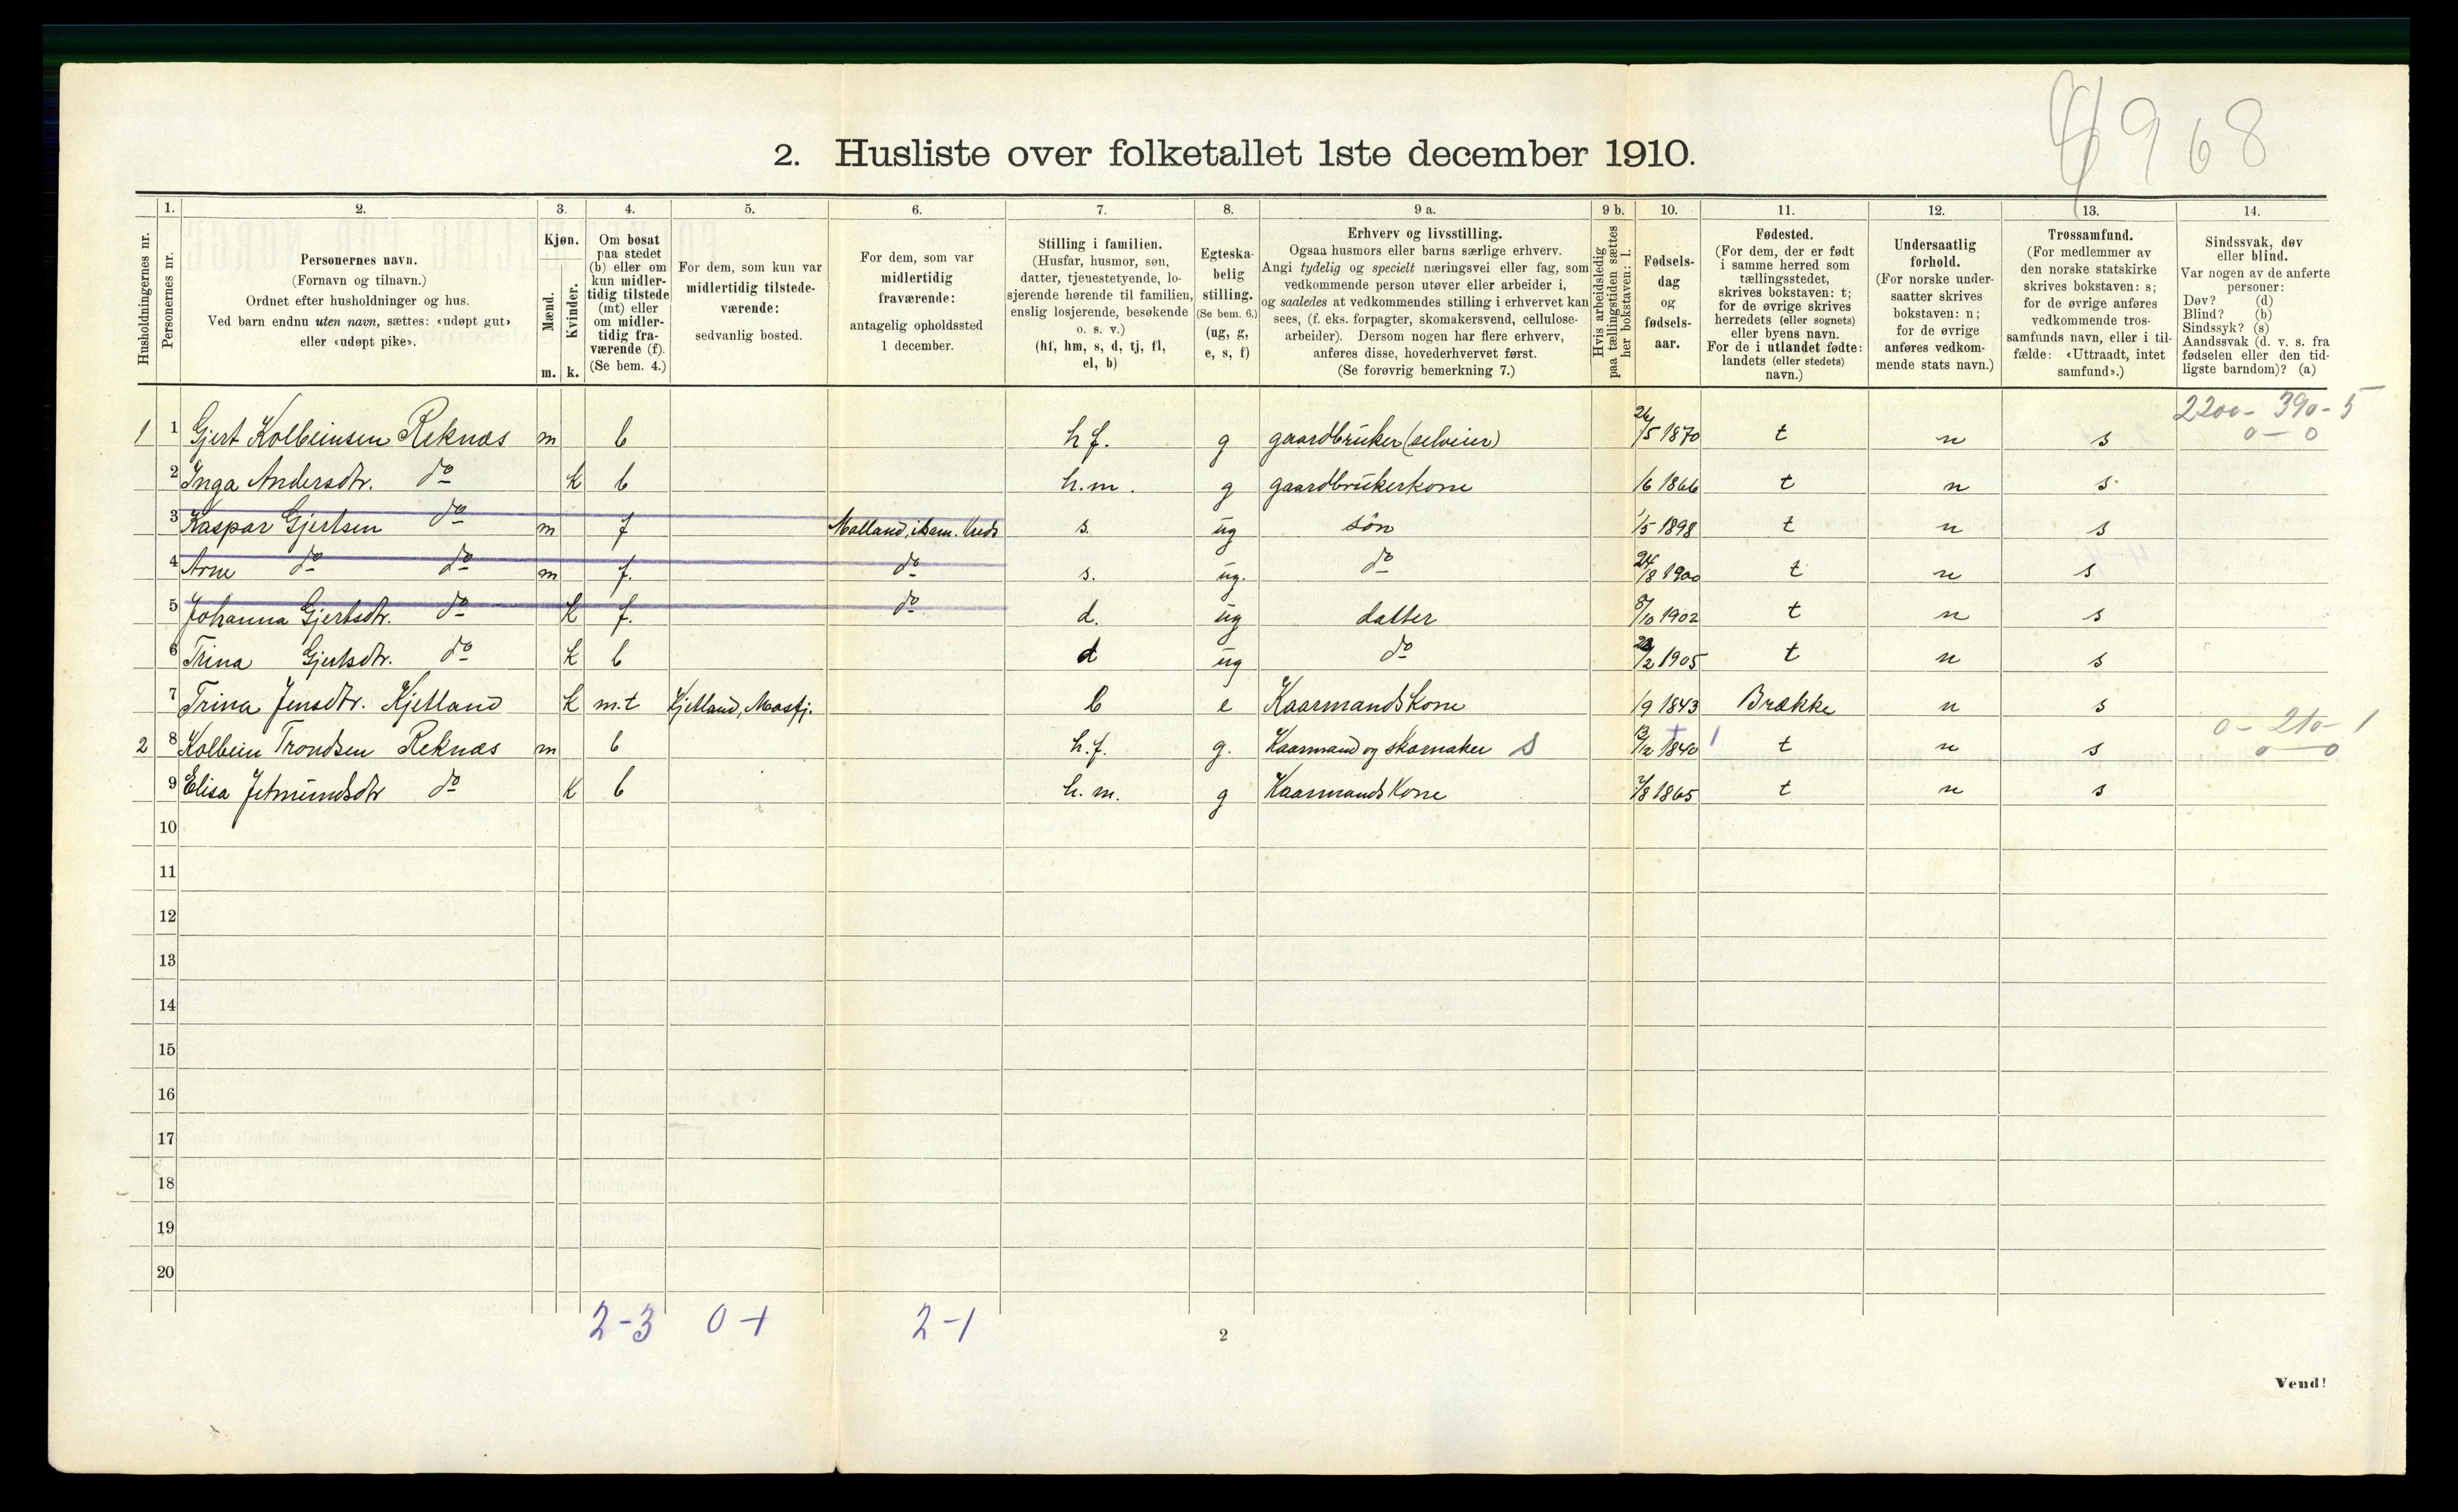 4968
2. Husliste over folketallet 1ste december 1910.
Husholdningernes nr.
1.
Personernes nr.
2.
Personernes navn.
(Fornavn og tilnavn.)
Ordnet efter husholdninger og hus.
Ved barn endnu uten navn, sættes: «udøpt gut»
eller «udøpt pike».
3.
Kjøn.
Mænd.
Kvinder.
m. k.
4.
Om bosat
paa stedet
(b) eller om
kun midler-
tidig tilstede
(mt) eller
om midler-
tidig fra-
værende (f).
(Se bem. 4.)
5.
For dem, som kun var
midlertidig tilstede-
værende:
sedvanlig bosted.
6.
For dem, som var
midlertidig
fraværende:
antagelig opholdssted
1 december.
7.
Stilling i familien.
(Husfar, husmor, søn,
datter, tjenestetyende, lo-
sjerende hørende til familien,
enslig losjerende, besøkende
o. s. v.)
(hf, hm, s, d, tj, fl,
el, b)
8.
Egteska-
belig
stilling.
(Se bem. 6.)
(ug, g,
e, s, f)
9 a.
Erhverv og livsstilling.
Ogsaa husmors eller barns særlige erhverv.
Angi tydelig og specielt næringsvei eller fag, som
vedkommende person utøver eller arbeider i,
og saaledes at vedkommendes stilling i erhvervet kan
sees, (f. eks. forpagter, skomakersvend, cellulose-
arbeider). Dersom nogen har flere erhverv,
anføres disse, hovederhvervet først.
(Se forøvrig bemerkning 7.)
9 b.
Hvis arbeidsledig
paa tællingstiden sættes
her bokstaven: l.
10.
Fødsels-
dag
og
fødsels-
aar.
11.
Fødested.
(For dem, der er født
i samme herred som
tællingsstedet,
skrives bokstaven: t;
for de øvrige skrives
herredets (eller sognets)
eller byens navn.
For de i utlandet fødte:
landets (eller stedets)
navn.)
12.
Undersaatlig
forhold.
(For norske under-
saatter skrives
bokstaven: n;
for de øvrige
anføres vedkom-
mende stats navn.)
13.
Trossamfund.
(For medlemmer av
den norske statskirke
skrives bokstaven: s;
for de øvrige anføres
vedkommende tros-
samfunds navn, eller i til-
fælde: «Uttraadt, intet
samfund».)
14.
Sindssvak, døv
eller blind.
Var nogen av de anførte
personer:
Døv? (d)
Blind? (b)
Sindssyk? (s)
Aandssvak (d. v. s. fra
fødselen eller den tid-
ligste barndom)? (a)
2200 - 390 - 5
1 1 Gjert Kolbeinsen Reknæs m b h f. g gaardbruker (selveier) 26/5 1870 t n s 0 - 0
2 Inga Andersdtr. do K b h.m. g gaardbrukerkone 1/6 1866 t n s
3 Kaspar Gjertsen do m f Molland, i sam. Kreds s. ug søn 1/5 1898 t n s
4 Arne do do m f. do s. ug. do 24/8 1900 t n s
5 Johanna Gjertsdtr. do K f. do d. ug datter 8/10 1902 t n s
6 Trina Gjertsdtr. do K b d ug do 22/2 1905 t n s
7 Trina Jensdtr. Kjetland K m.t Kjetland, Masfj. b e Kaarmandskone 1/9 1843 Brække n s
0 - 210 - 1
2 8 Kolbein Trondsen Reknæs m b h.f. g. Kaarmand og skomaker S 13/12 1840 1 t n s 0 - 0
9 Elisa Jetmundsdtr do K b h. m. g Kaarmands Kone 7/8 1865 t n s
10
11
12
13
14
15
16
17
18
19
20
2-3 0-1 2-1
2
Vend!